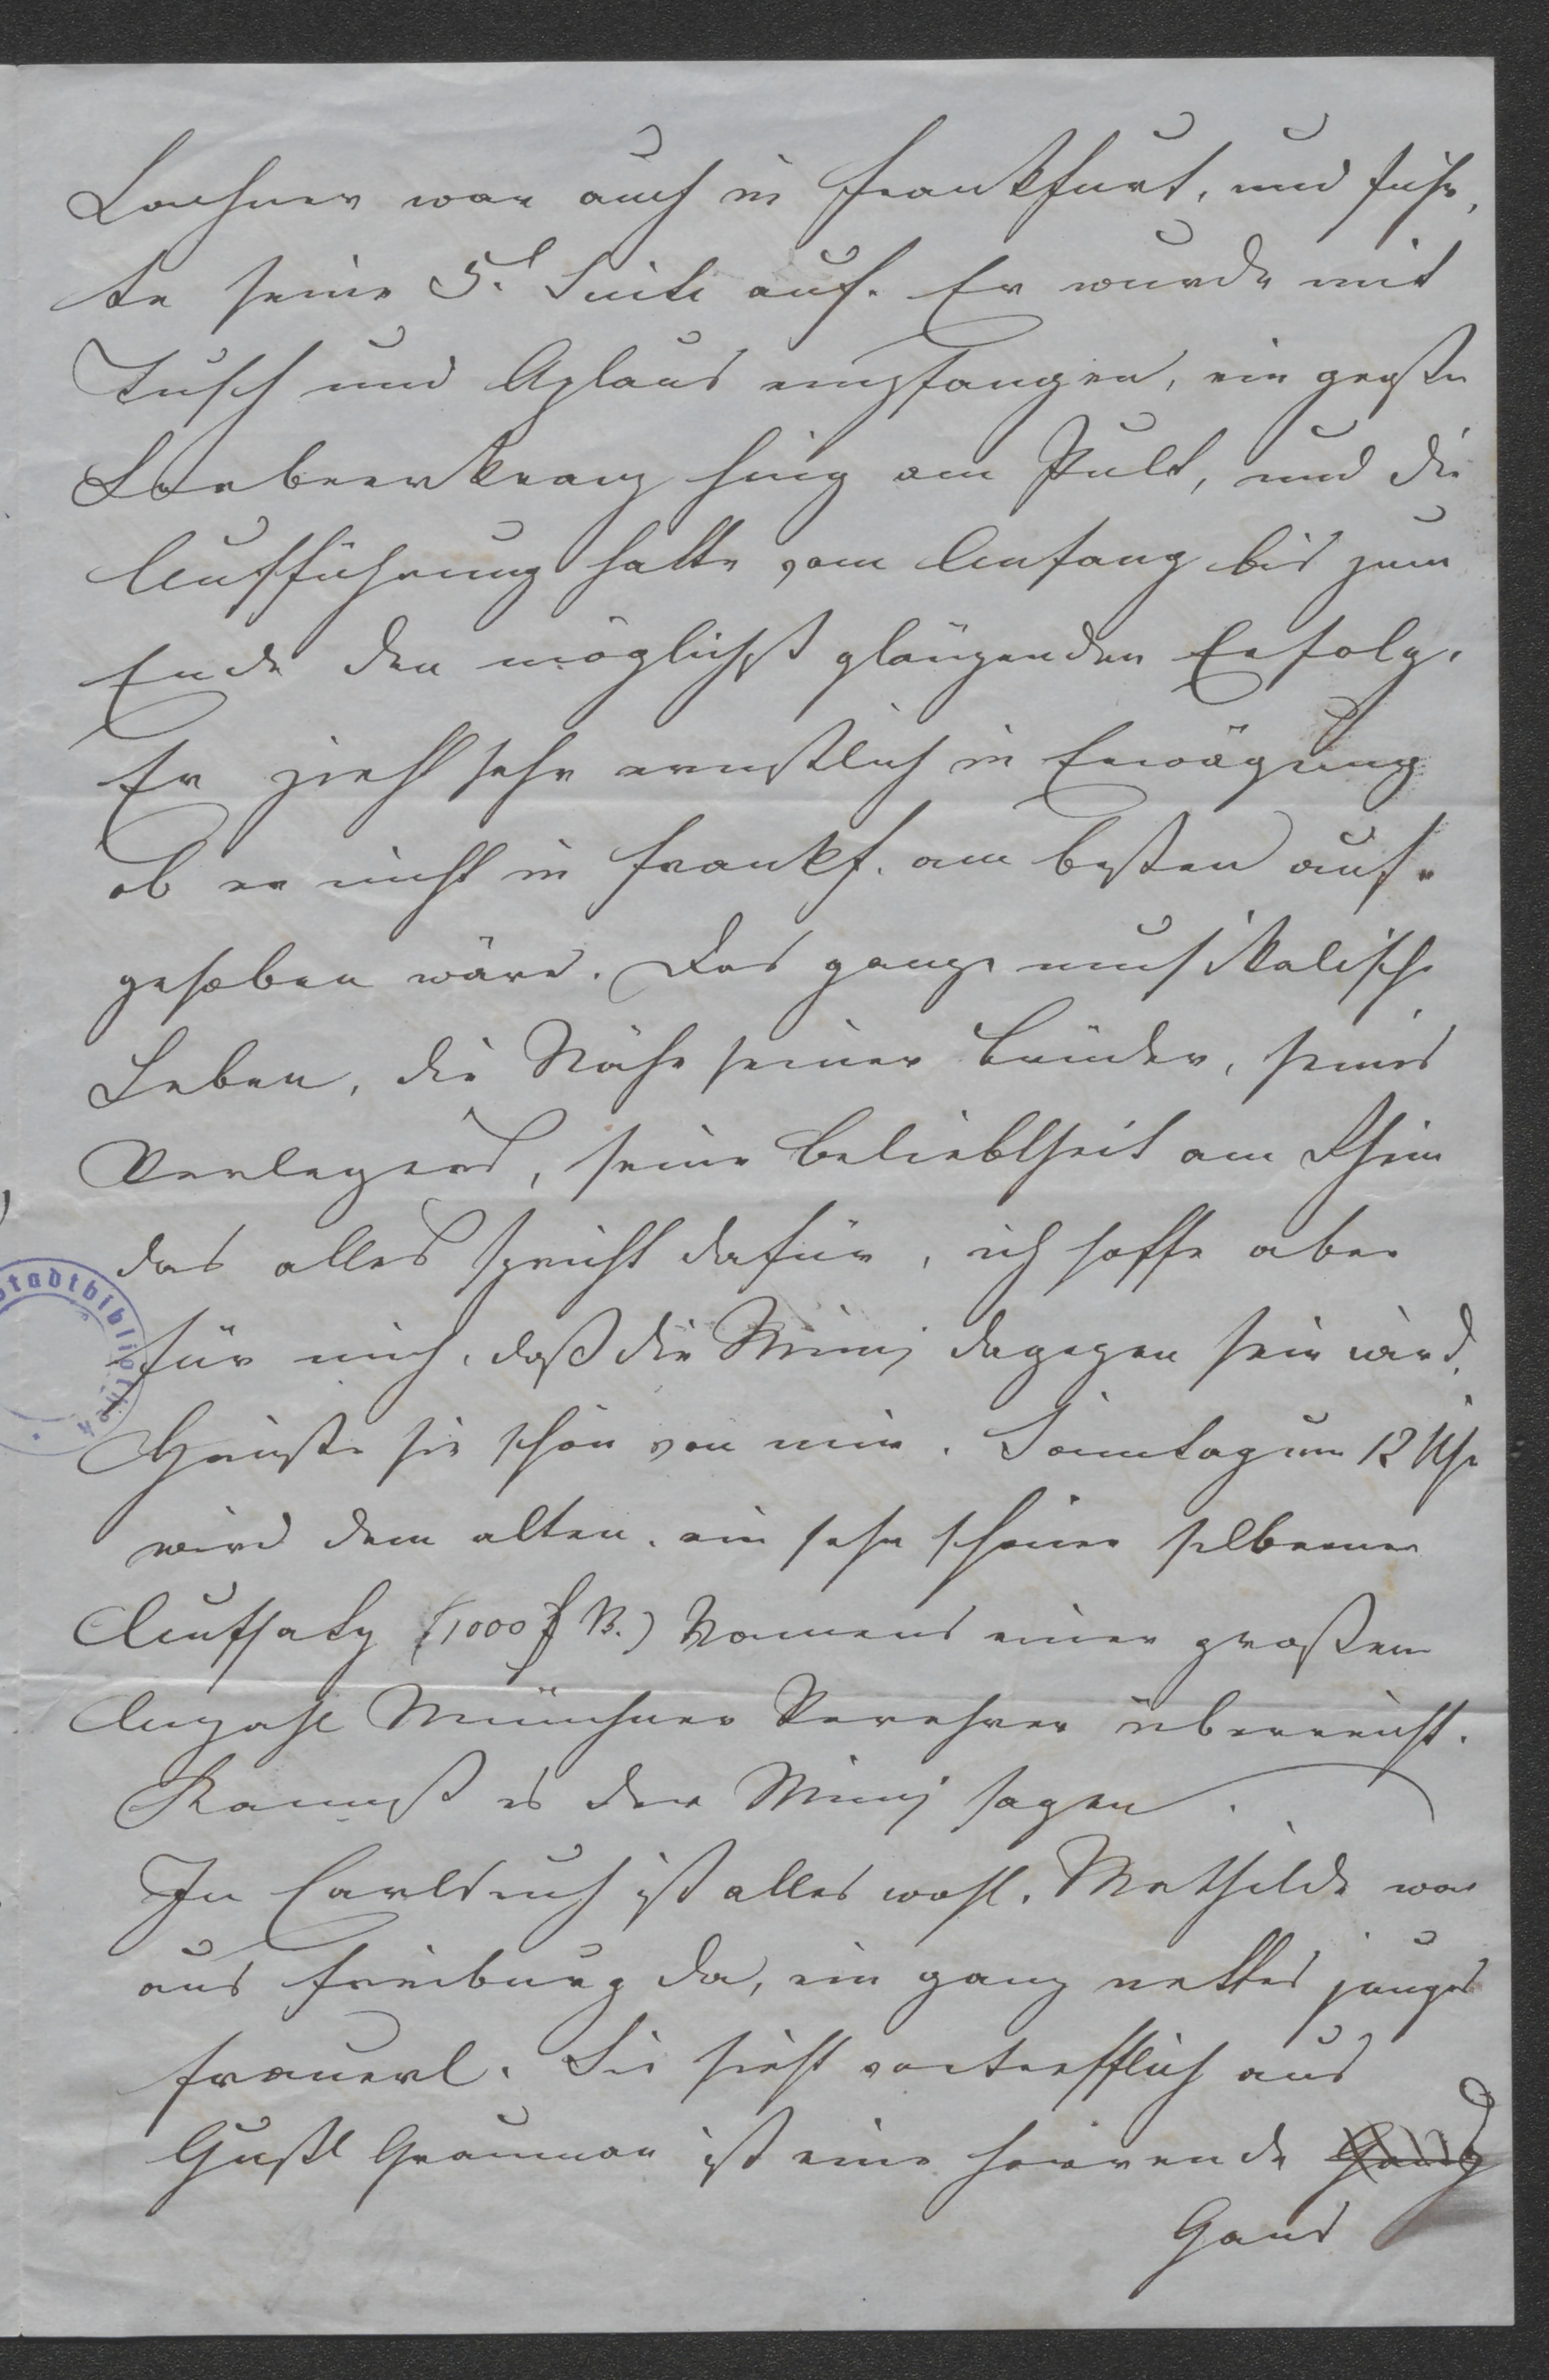 Lachner war auch in Frankfurt, und führ,
te seine 5.t Suite auf. Er wurde mit
Tusch und Aplaus empfangen, ein großer
Lorbeerkranz hing am Pult, und die
Aufführung hatte vom Anfang bis zum
Ende den möglichst glänzenden Erfolg.
Er zieht sehr ernstlich in Erwägung
ob er nicht in Frankf. am besten auf-
gehoben wäre. Das ganze musikalische
Leben, die Nähe seiner Brüder, seines
Verlegers, seine Beliebtheit am Rhein
das alles spricht dafür, ich hoffe aber
für mich, daß die Mimj dagegen sein wird.
Grüße sie schön von mir. Sonntag um 12 Uhr
wird dem alten. ein sehr schöner silberner
Aufsatz (1000 f B.) Namens einer großen
Anzahl Münchner Verehrer überreicht.
Kannst es der Mimj sagen.
In Carlsruh ist alles wohl. Mathilde war
aus Freiburg da, ein ganz nettes junges
Frauerl. Sie sieht vortrefflich aus
Gustl ist eine horrende
Gans
Stadtbibliothek